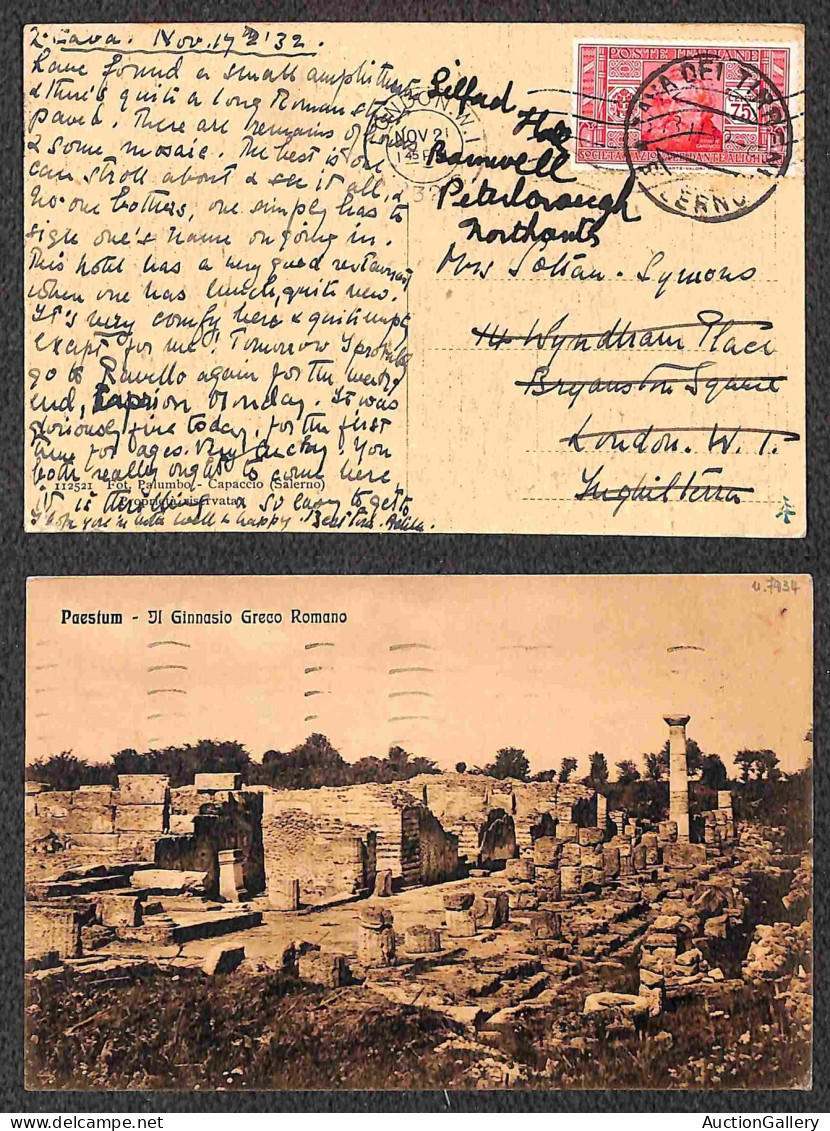 2. Cava. Nov. 17 '32.
have found a small amphitheatre
& there's quite a long Roman street
paved. There are remains of houses
& some mosaic. The best is one
can stroll about & see it all, &
no-one bothers, one simply has to
sign one's name on going in.
This hotel has a very good restaurant
when one has lunch, quite new.
It's very comfy here & quite empty
except for me! Tomorrow I probably
go to Ravello again for the week-
end, Capri on Monday. It was
gloriously fine today, for the first
time for ages. Very lucky. You
both really ought to come here,
it is & so easy to get to
I hope you're both well & happy. Best love.
112521 Fot. Palumbo - Capaccio (Salerno)
Proprietà riservata
LONDON. W.1
NOV 21
1 45 PM
32
POSTE ITALIANE
CENT 75
SOCIETA NAZIONALE DANTE ALIGHIERI
CAVA DEI TIRRENI
SALERNO
Lilford
Hall
Barnwell
Peterborough
Northants
Mrs Soltau-Symons
14 Wyndham Place
Bryanston Square
London. W. 1.
Inghilterra
Paestum - Il Ginnasio Greco Romano
u.7934
AuctionGallery